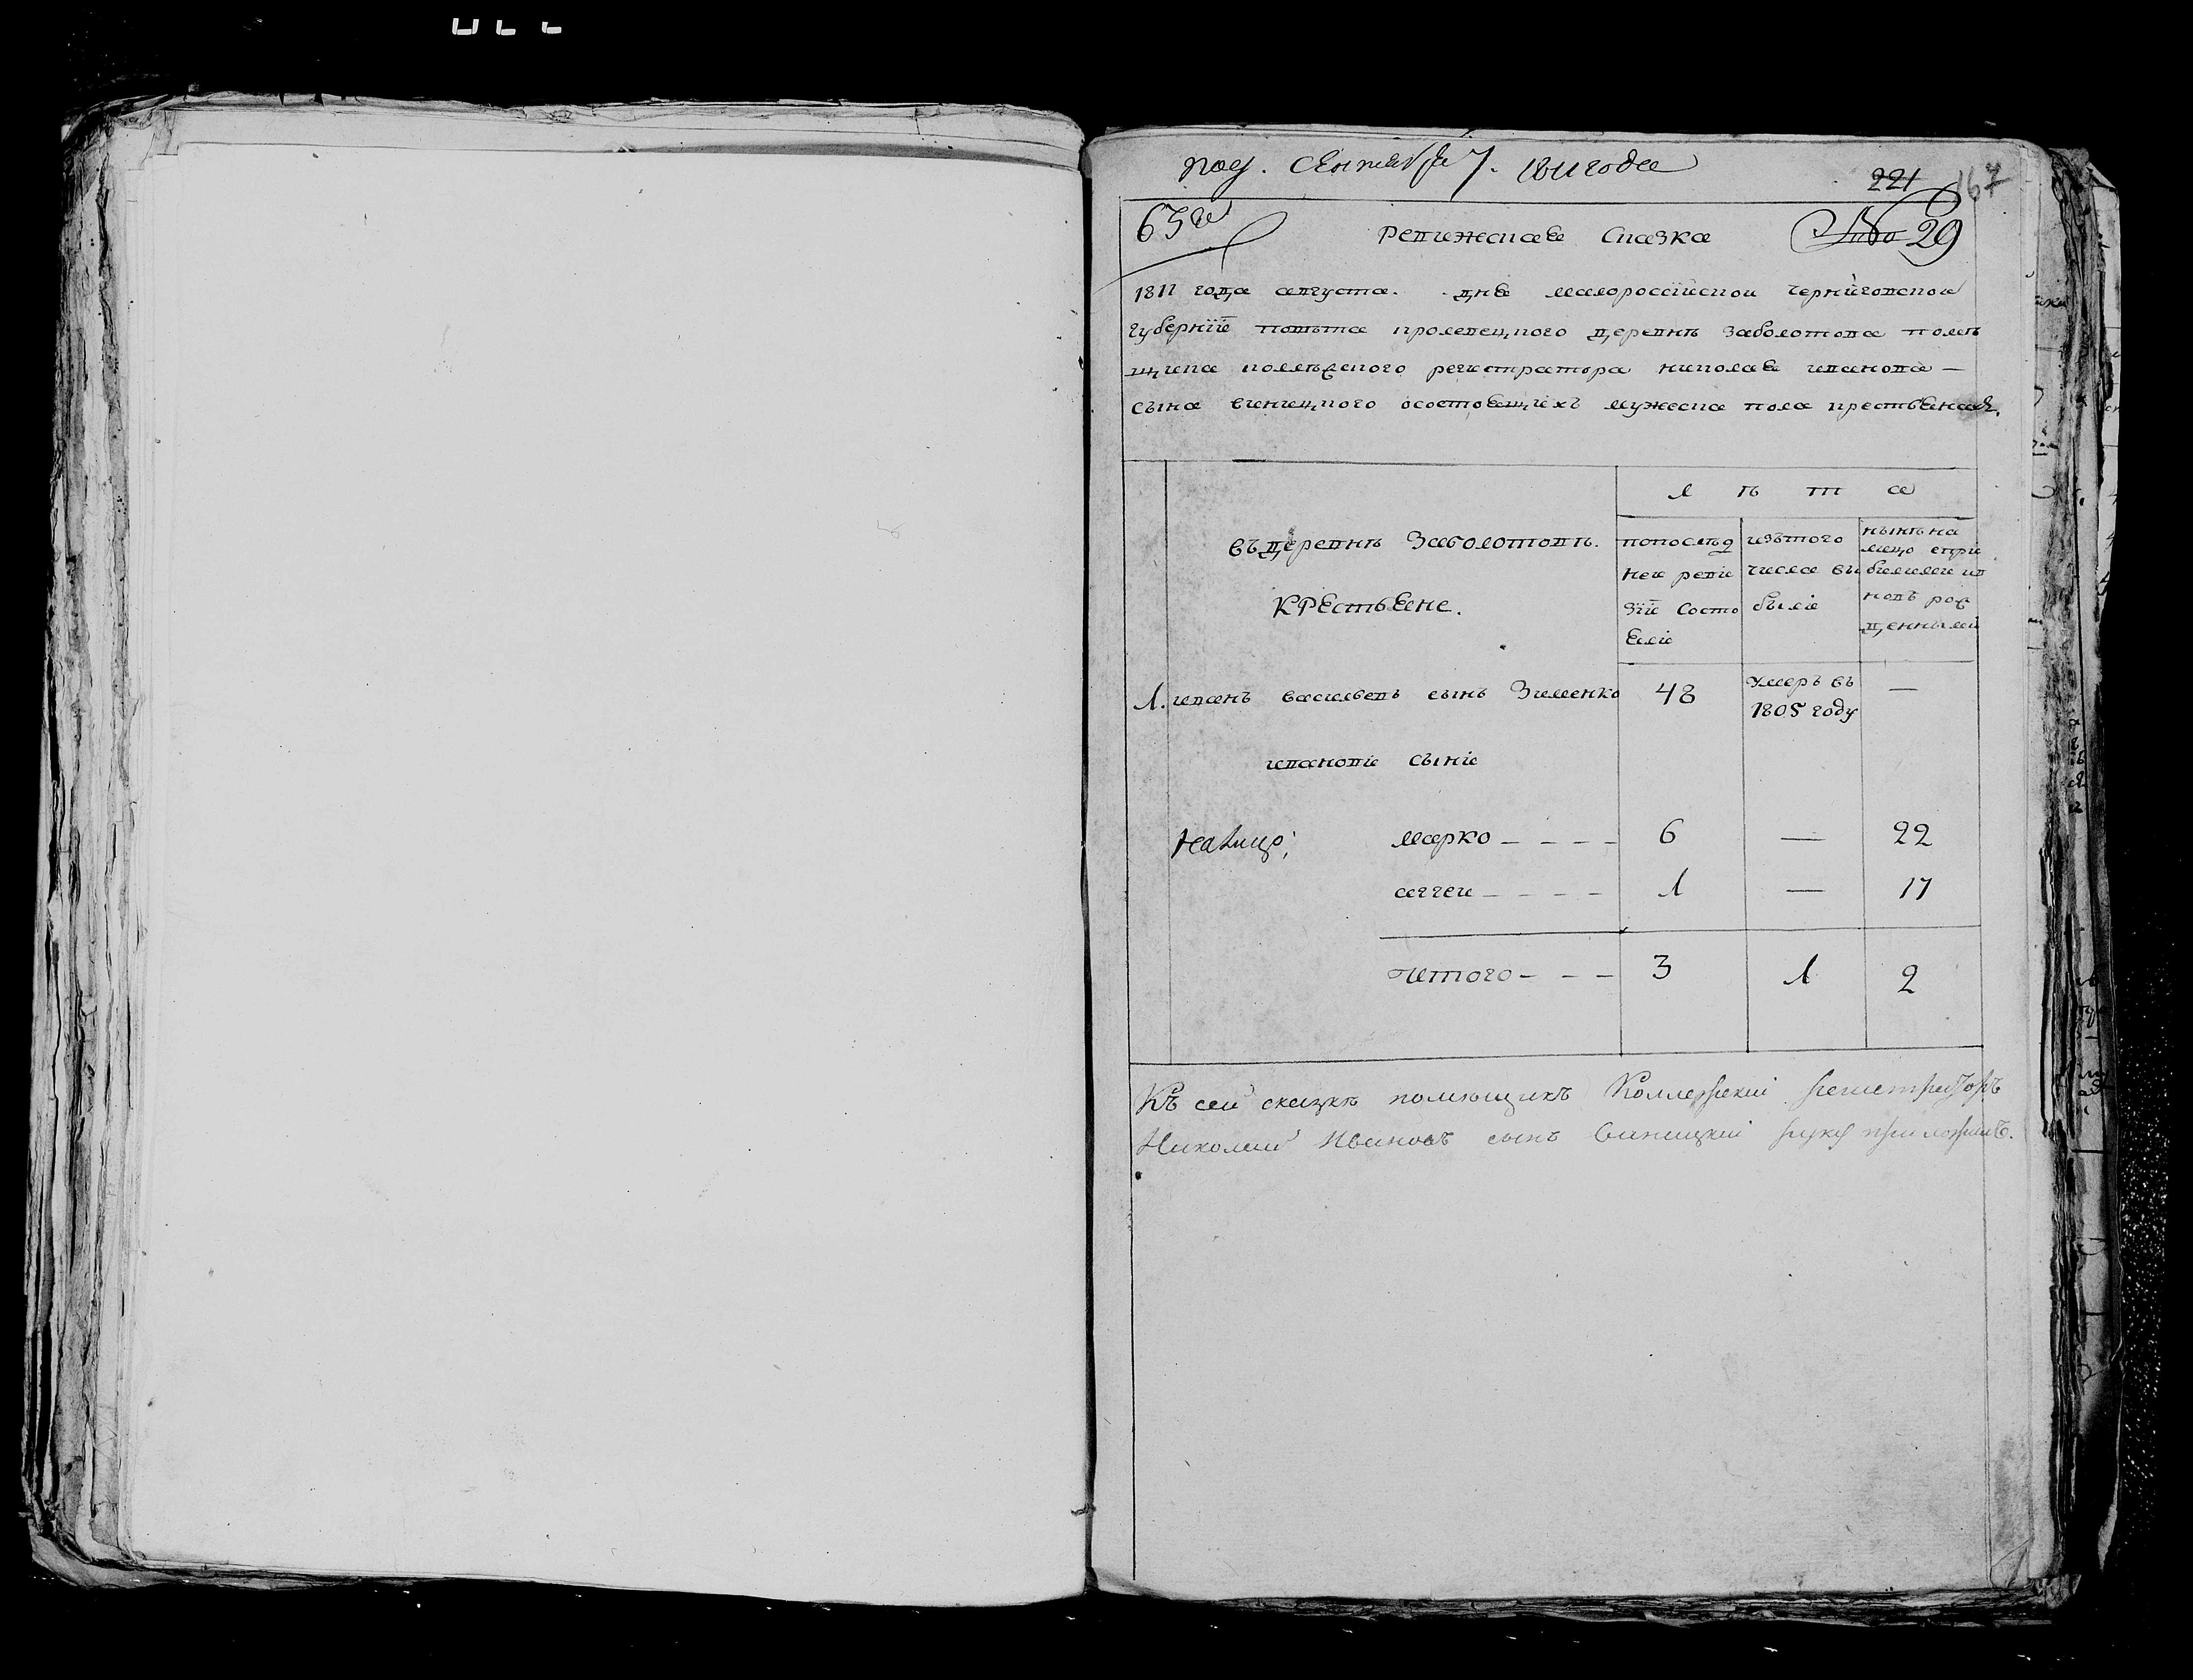 под. Сентября 7. 1811 года
221 167
65го
ревижская сказка № 29
1811 года августа. дня малороссїиской чернѝговской
губернїи повѣта кролевецкого деревнѣ Заболотова помѣ
щика коллѣжского регистратора николая иванова —
сына виницкого осостоящихъ мужеска пола крестьянахъ.
л ѣ т а
въ деревнѣ Заболотовѣ.
крестьяне.
попослѣд
ней реви
зїи состо
яли
изътого
числа вы
были
нынѣ на
лицо спри
былими ип
новъ рож
денными
1. иванъ васильевъ сынъ Зименко 48 умеръ въ 1805 году —
ивановы сыны
Налицо; марко - - - - 6 — 22
сергей - - - - 1 — 17
итого - - - 3 1 2
Къ сей сказкѣ помѣщикъ Коллежский регистраторъ
Николай Ивановъ сынъ Виницкий руку приложилъ.